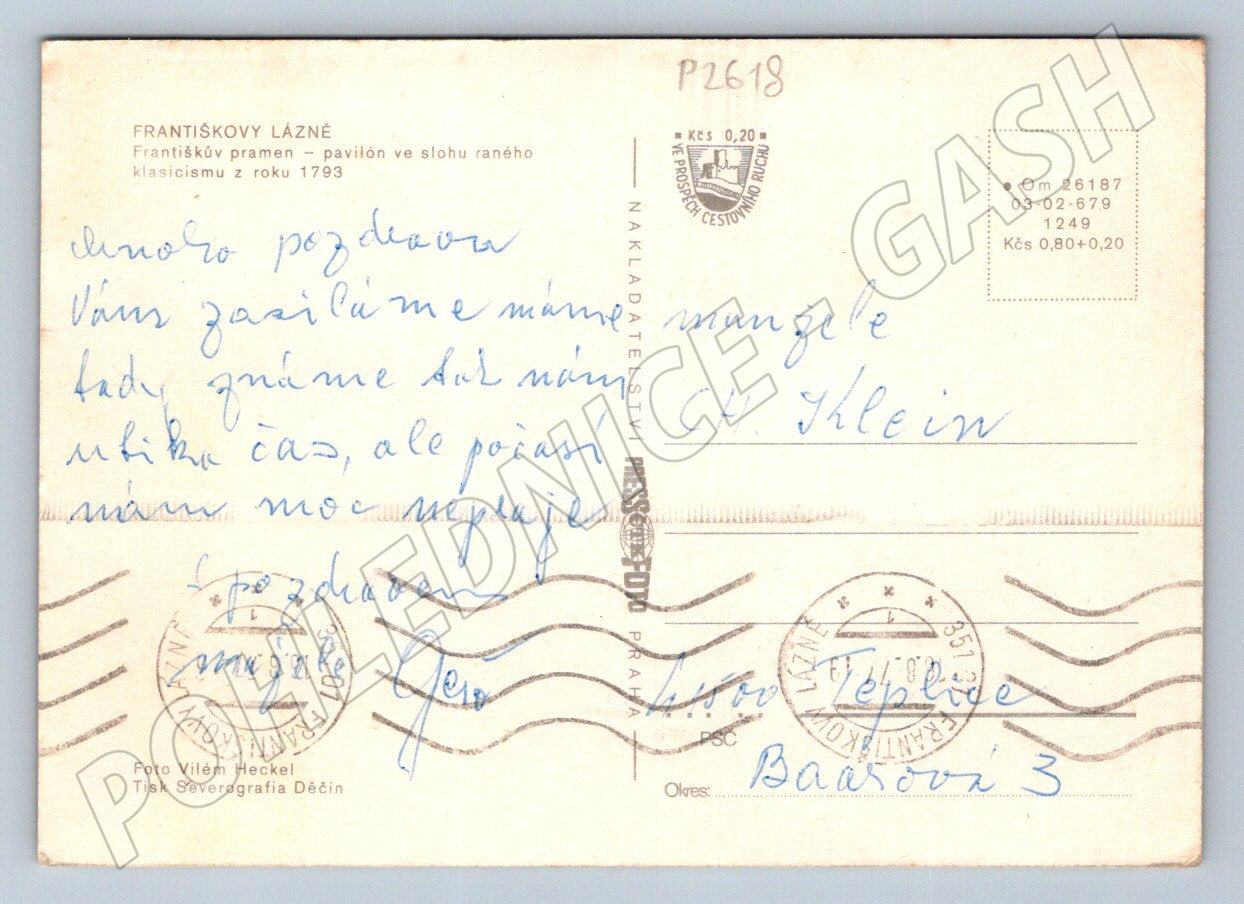 P2618
FRANTIŠKOVY LÁZNĚ
Františkův pramen – pavilón ve slohu raného
klasicismu z roku 1793
Kčs 0,20
VE PROSPĚCH CESTOVNÍHO RUCHU
Om 26187
03-02-679
1249
Kčs 0,80+0,20
mnoho pozdravu
Vám zasíláme máme
tady známe tak nám
utika čas, ale počasí
nám moc nepřeje
S pozdravem
manželé
NAKLADATELSTVÍ
PRESSFOTO
PRAHA
manžele
Klein
41500 Teplice
PSČ
Baarová 3
Okres:
351 01 FRANTIŠKOVY LÁZNĚ
1
351 01 FRANTIŠKOVY LÁZNĚ
1
8.77-19
Foto Vilém Heckel
Tisk Severografia Děčín
POHLEDNICE - GASH